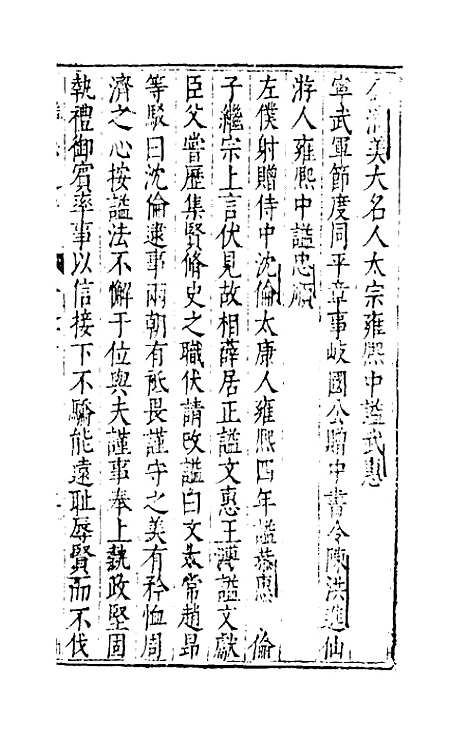 美大名人太宗雍熙中謚武惠
寧武軍節度同平章事岐國公贈中書令陳洪進仙
游人雍熙中謚忠順
左僕射贈侍中沈倫太康人雍熙四年謚恭惠 倫
子繼宗上言伏見故相薛居正謚文惠王溥謚文獻
臣父嘗歷集賢脩史之職伏請改謚曰文太常趙昂
等駁曰沈倫逮事兩朝有祗畏謹守之美有矜恤周
濟之心按謚法不懈于位與夫謹事奉上執政堅固
執禮御賓率事以信接下不驕能遠耻辱賢而不伐